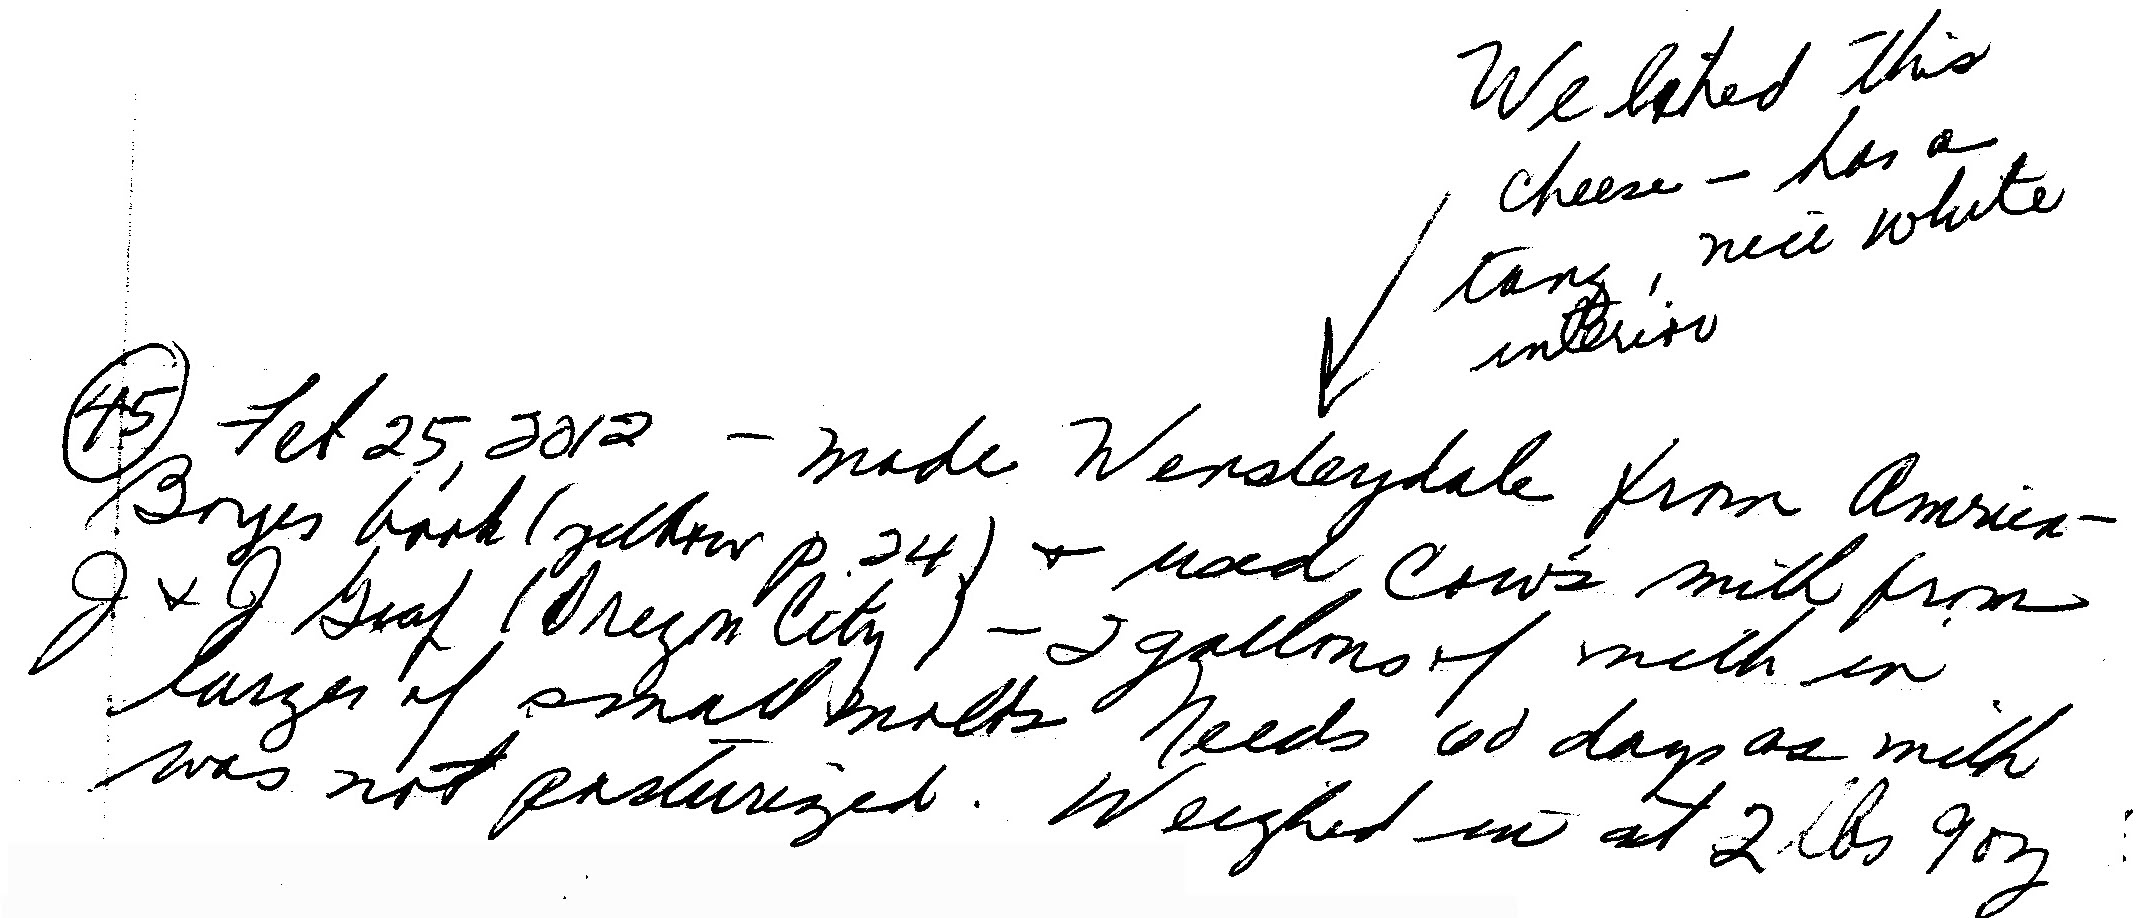 We liked this
cheese – has a
tang, nice white
interior
45 Feb 25, 2012 – made Wensleydale from America–
Borges book (yellow p. 24) + used Cow's milk from
J + J Graf (Oregon City) – 2 gallons of milk in
larger of small molds Needs 60 days as milk
was not pasturized. Weighed in at 2 lbs 9 oz